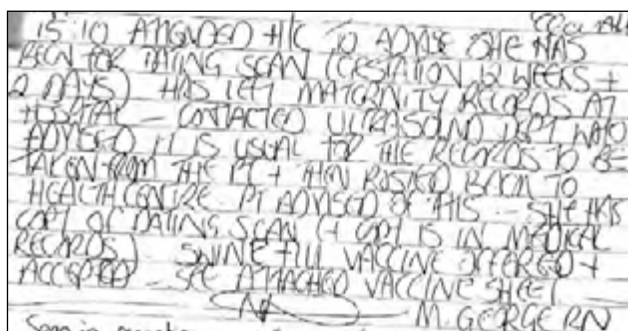 15:10 ATTENDED H/C TO ADVISE SHE HAS
BEEN FOR DATING SCAN (GESTATION 12 WEEKS +
2 DAYS) HAS LEFT MATERNITY RECORDS AT
HOSPITAL – CONTACTED ULTRASOUND DEPT WHO
ADVISED IT IS USUAL FOR THE RECORDS TO BE
TAKEN FROM THE PT + THEN POSTED BACK TO
HEALTH CENTRE. PT ADVISED OF THIS – SHE HAS
COPY OF DATING SCAN (+ COPY IS IN MEDICAL
RECORDS) SWINE FLU VACCINE OFFERED +
ACCEPTED – SEE ATTACHED VACCINE SHEET
M. GEORGE RN